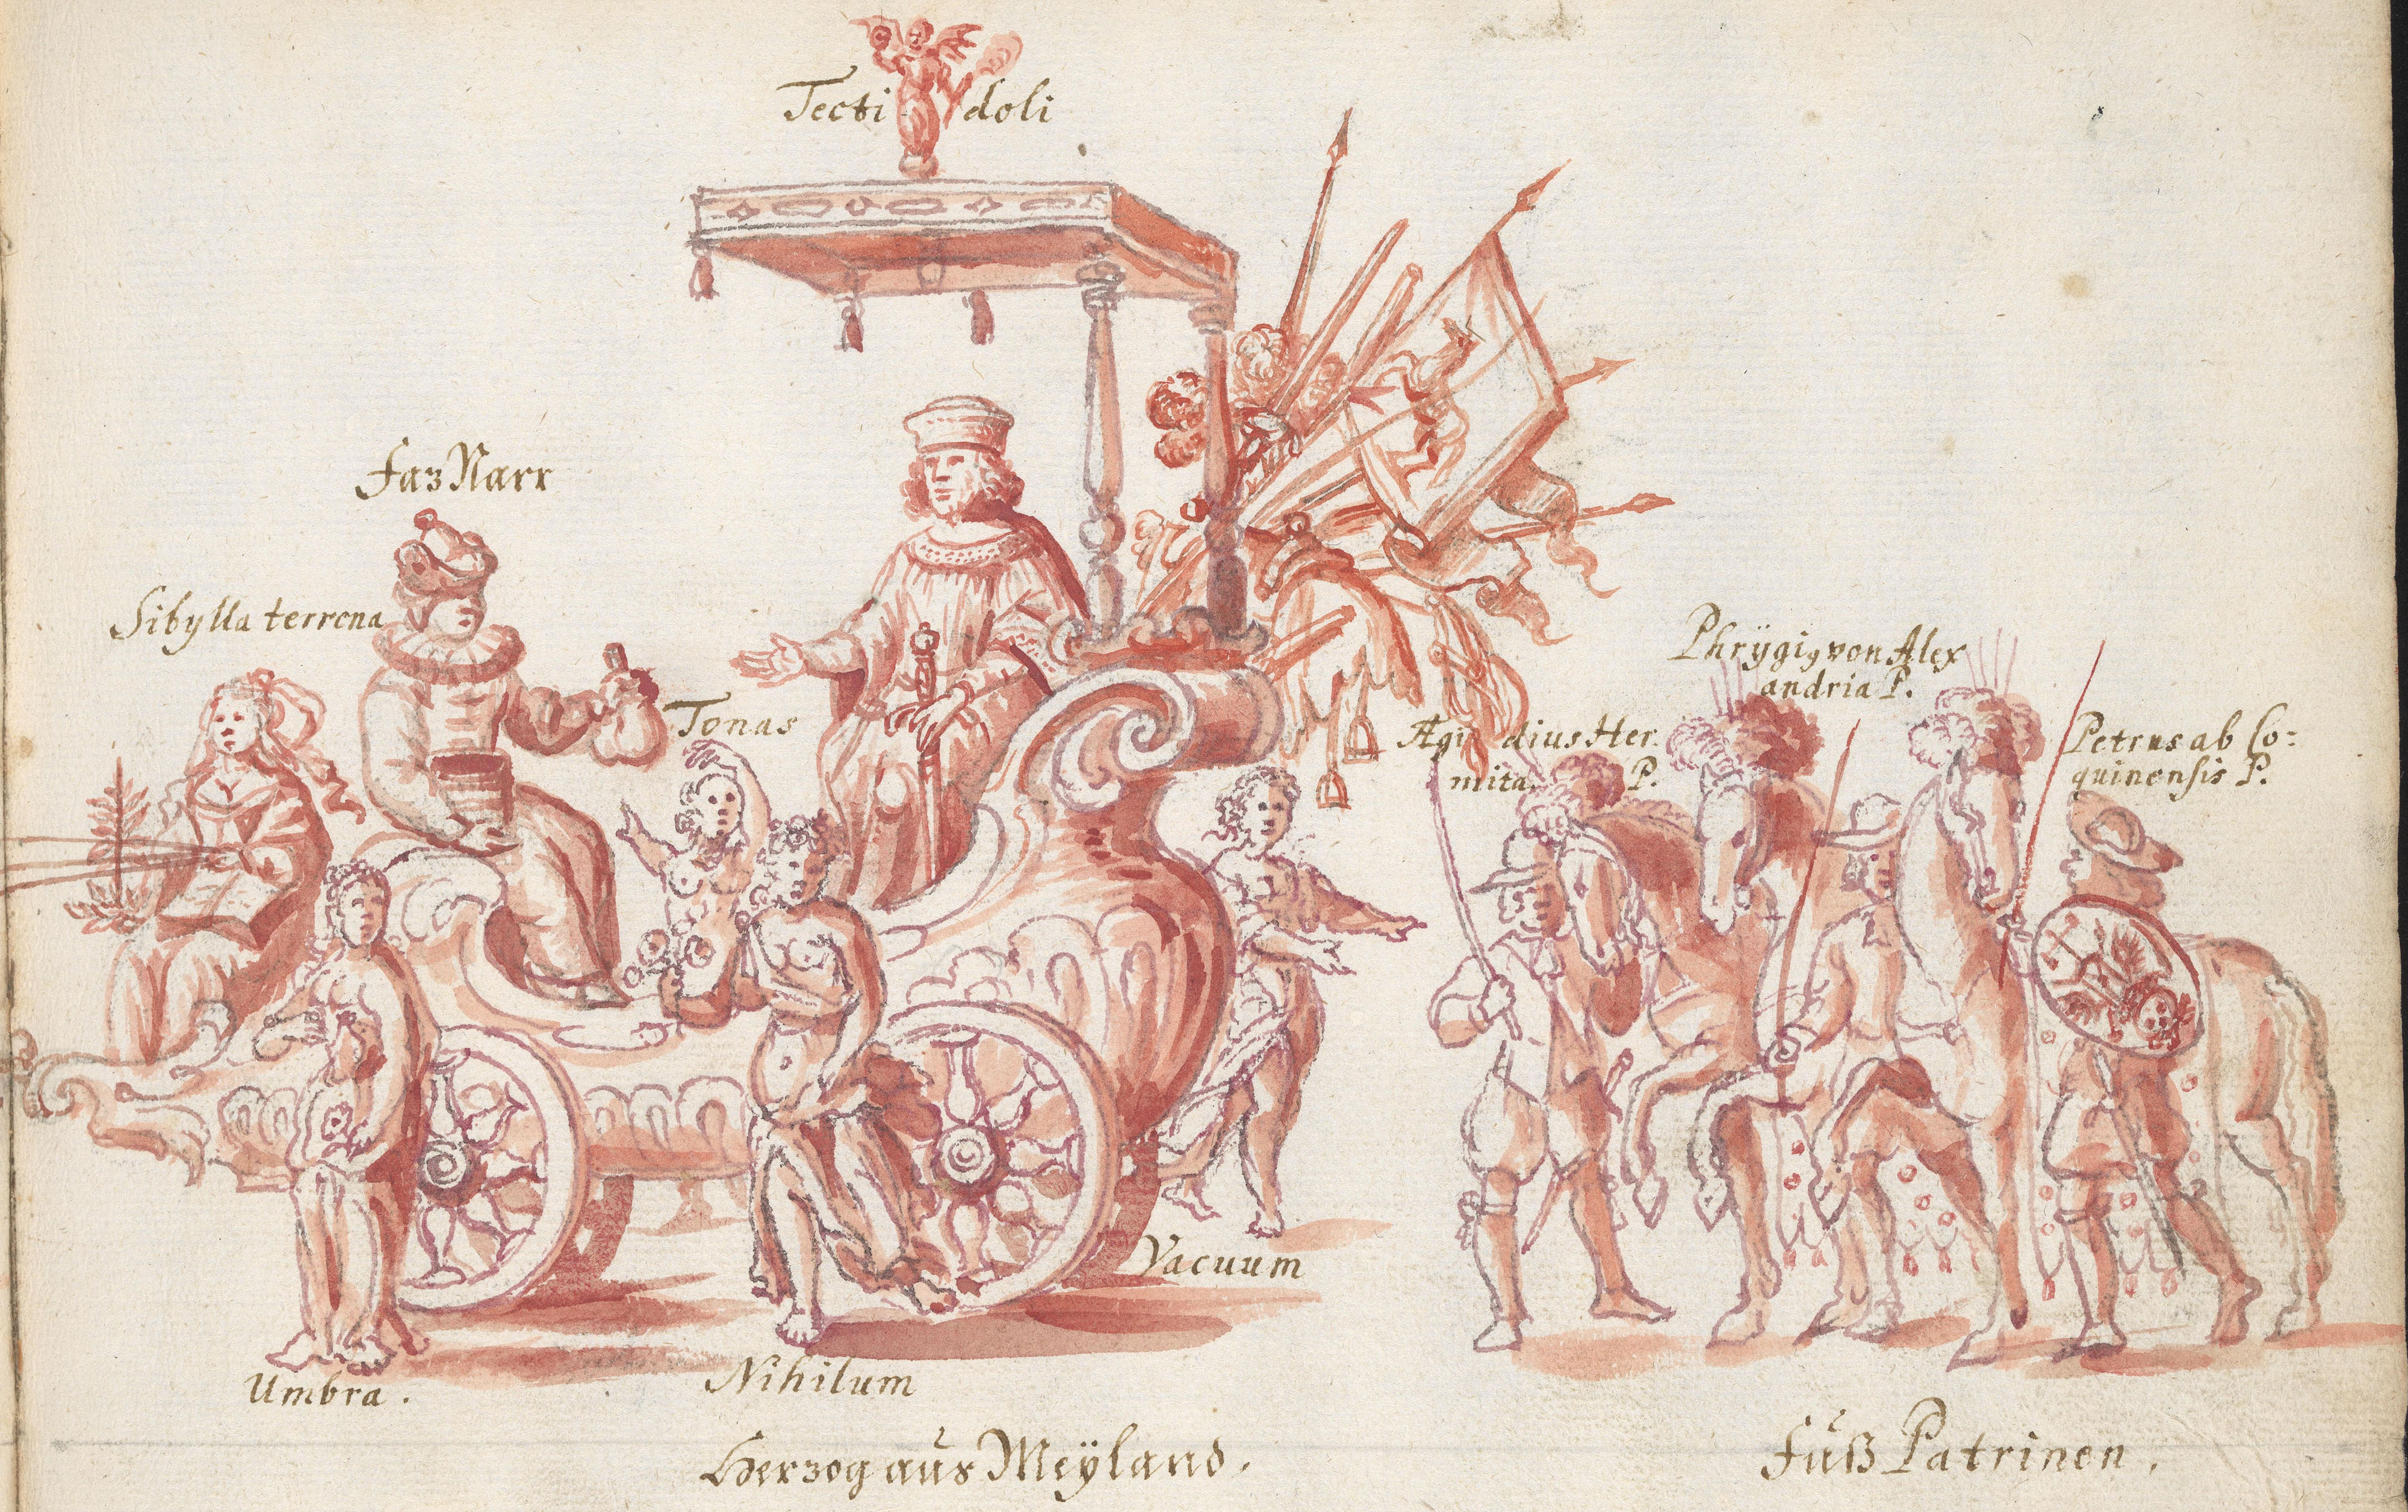 Tecti doli
Faz Narr
Sibylla terrena
Tonas
Phrÿgiꝰ von Alex
andria P.
Ægidius Her.
mita P.
Petrus ab Co:
quinensis P.
Vacuum
Umbra.
Nihilum
Herzog aus Meÿland.
Fuß Patrinen.